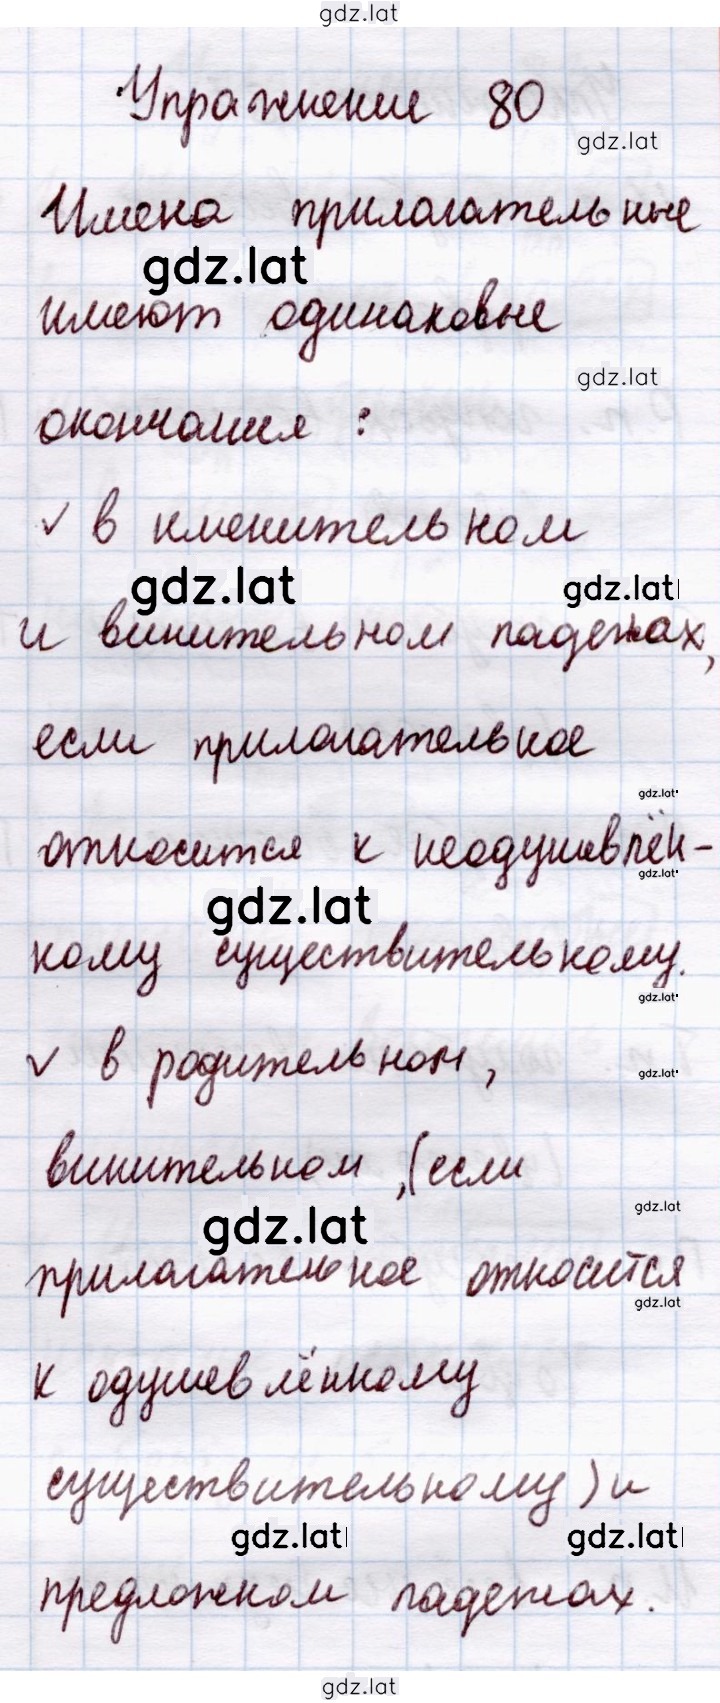 gdz.lat
Упражнение 80
gdz.lat
Имена прилагательные
gdz.lat
имеют одинаковые
gdz.lat
окончания :
✓ в именительном
gdz.lat gdz.lat
и винительном падежах,
если прилагательное
gdz.lat
относится к неодушевлён-
gdz.lat
gdz.lat
ному существительному.
gdz.lat
✓ в родительном,
gdz.lat
винительном ,(если
gdz.lat
gdz.lat
прилагательное относится
gdz.lat
к одушевлённому
существительному) и
gdz.lat gdz.lat
предложном падежах.
gdz.lat